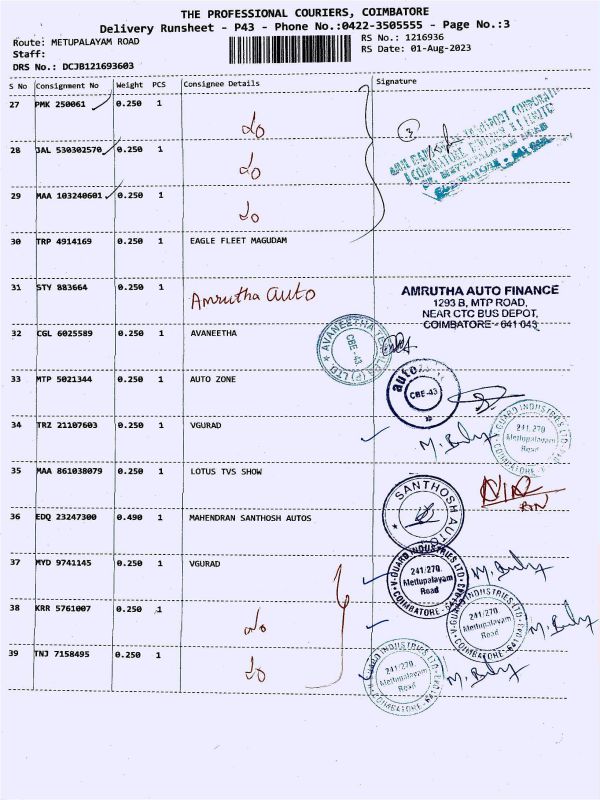 THE PROFESSIONAL COURIERS, COIMBATORE
Delivery Runsheet - P43 - Phone No.:0422-3505555 - Page No.:3
Route: METUPALAYAM ROAD
RS No.: 1216936
Staff:
RS Date: 01-Aug-2023
DRS No.: DCJB121693603
S No Consignment No Weight PCS Consignee Details Signature
27 PMK 250061 0.250 1
3
28 JAL 530302570 0.250 1
29 MAA 103240601 0.250 1
30 TRP 4914169 0.250 1 EAGLE FLEET MAGUDAM
31 STY 883664 0.250 1 Amrutha auto
AMRUTHA AUTO FINANCE
1293 B, MTP ROAD,
NEAR CTC BUS DEPOT,
COIMBATORE - 641 043
32 CGL 6025589 0.250 1 AVANEETHA
CBE-43
33 MTP 5021344 0.250 1 AUTO ZONE
CBE-43
34 TRZ 21107603 0.250 1 VGURAD
V-GUARD INDUSTRIES LTD
241/270,
Mettupalayam
Road
COIMBATORE
35 MAA 861038079 0.250 1 LOTUS TVS SHOW
36 EDQ 23247300 0.490 1 MAHENDRAN SANTHOSH AUTOS
SANTHOSH AUTO
37 MYD 9741145 0.250 1 VGURAD
V-GUARD INDUSTRIES LTD
241/270,
Mettupalayam
Road
COIMBATORE - 641 043
38 KRR 5761007 0.250 1
V-GUARD INDUSTRIES LTD
241/270,
Mettupalayam
Road
COIMBATORE - 641
39 TNJ 7158495 0.250 1
GUARD INDUSTRIES LTD
241/270,
Mettupalayam
Road
COIMBATORE